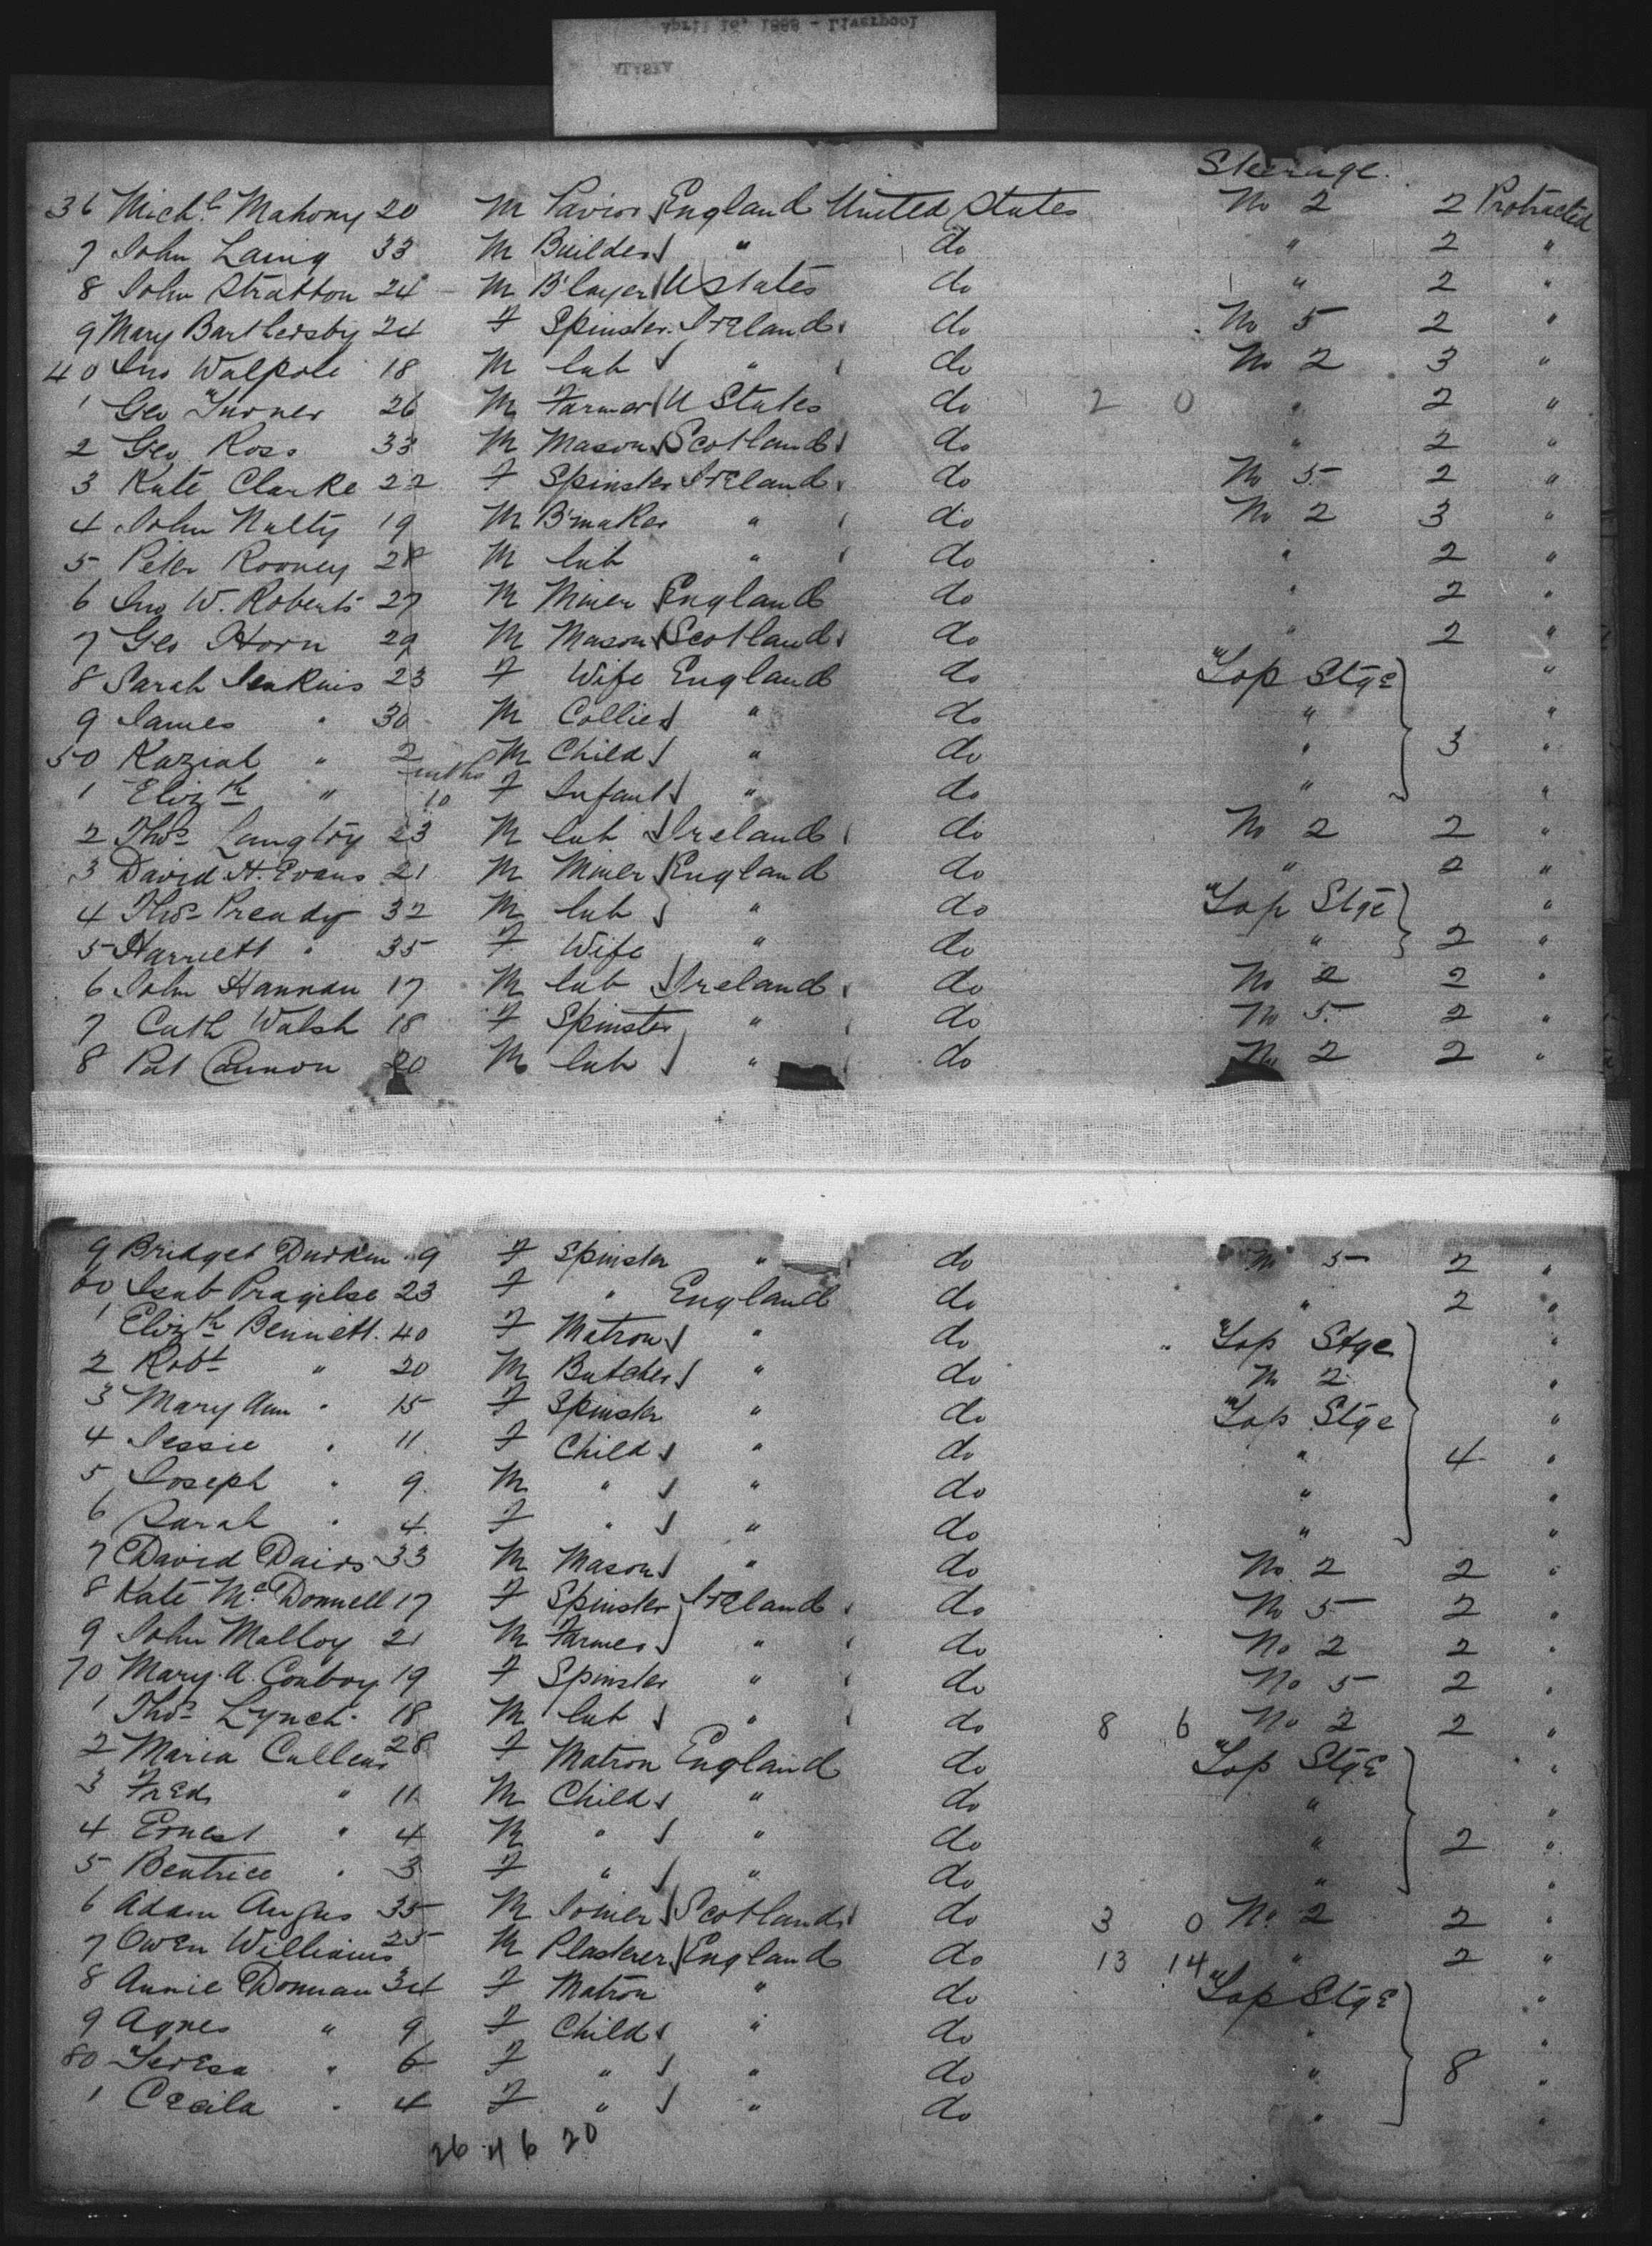 Steerage.
36 Michl Mahony 20 M Pavior England United States No 2 2 Protracted
7 John Laing 33 M Builder " do " 2 "
8 John Stratton 24 M B'layer U States do " 2 "
9 Mary Barthersby 24 F Spinster Ireland do No 5 2 "
40 Jno Walpole 18 M Lab " do No 2 3 "
1 Geo Turner 26 M Farmer U States do 2 0 " 2 "
2 Geo Ross 33 M Mason Scotland do " 2 "
3 Kate Clarke 22 F Spinster Ireland do No 5 2 "
4 John Nulty 19 M B'maker " do No 2 3 "
5 Peter Rooney 28 M Lab " do " 2 "
6 Jno W. Roberts 27 M Miner England do " 2 "
7 Geo Horn 29 M Mason Scotland do " 2 "
8 Sarah Jenkins 23 F Wife England do Top Stge "
9 James " 30 M Collier " do " "
50 Kazial " 2 M Child " do " 3 "
1 Elizth " mths 10 F Infant " do " "
2 Thos Langtry 23 M Lab Ireland do No 2 2 "
3 David H. Evans 21 M Miner England do " 2 "
4 Thos Pready 32 M Lab " do Top Stge "
5 Harriett " 35 F Wife " do " 2 "
6 John Hannan 17 M Lab Ireland do No 2 2 "
7 Cath Walsh 18 F Spinster " do No 5 2 "
8 Pat Cannon 20 M Lab " do No 2 2 "
9 Bridget Durkin 9 F Spinster " do No 5 2 "
60 Isab Pragilse 23 F " England do " 2 "
1 Elizth Bennett 40 F Matron " do Top Stge "
2 Robt " 20 M Butcher " do No 2 "
3 Mary Ann " 15 F Spinster " do Top Stge "
4 Jessie " 11 F Child " do " 4 "
5 Joseph " 9 M " " do " "
6 Sarah " 4 F " " do " "
7 David Dairs 33 M Mason " do No 2 2 "
8 Kate McDonnell 17 F Spinster Ireland do No 5 2 "
9 John Malloy 21 M Farmer " do No 2 2 "
70 Mary A. Conboy 19 F Spinster " do No 5 2 "
1 Thos Lynch 18 M Lab " do 8 6 No 2 2 "
2 Maria Cullens 28 F Matron England do Top Stge "
3 Fred " 11 M Child " do " "
4 Ernest " 4 M " " do " 2 "
5 Beatrice " 3 F " " do " "
6 Adam Angus 35 M Joiner Scotland do 3 0 No 2 2 "
7 Owen Williams 25 M Plasterer England do 13 14 " 2 "
8 Annie Donnan 34 F Matron " do Top Stge "
9 Agnes " 9 F Child " do " "
80 Teresa " 6 F " " do " 8 "
1 Cecila " 4 F " " do " "
26 4 6 20